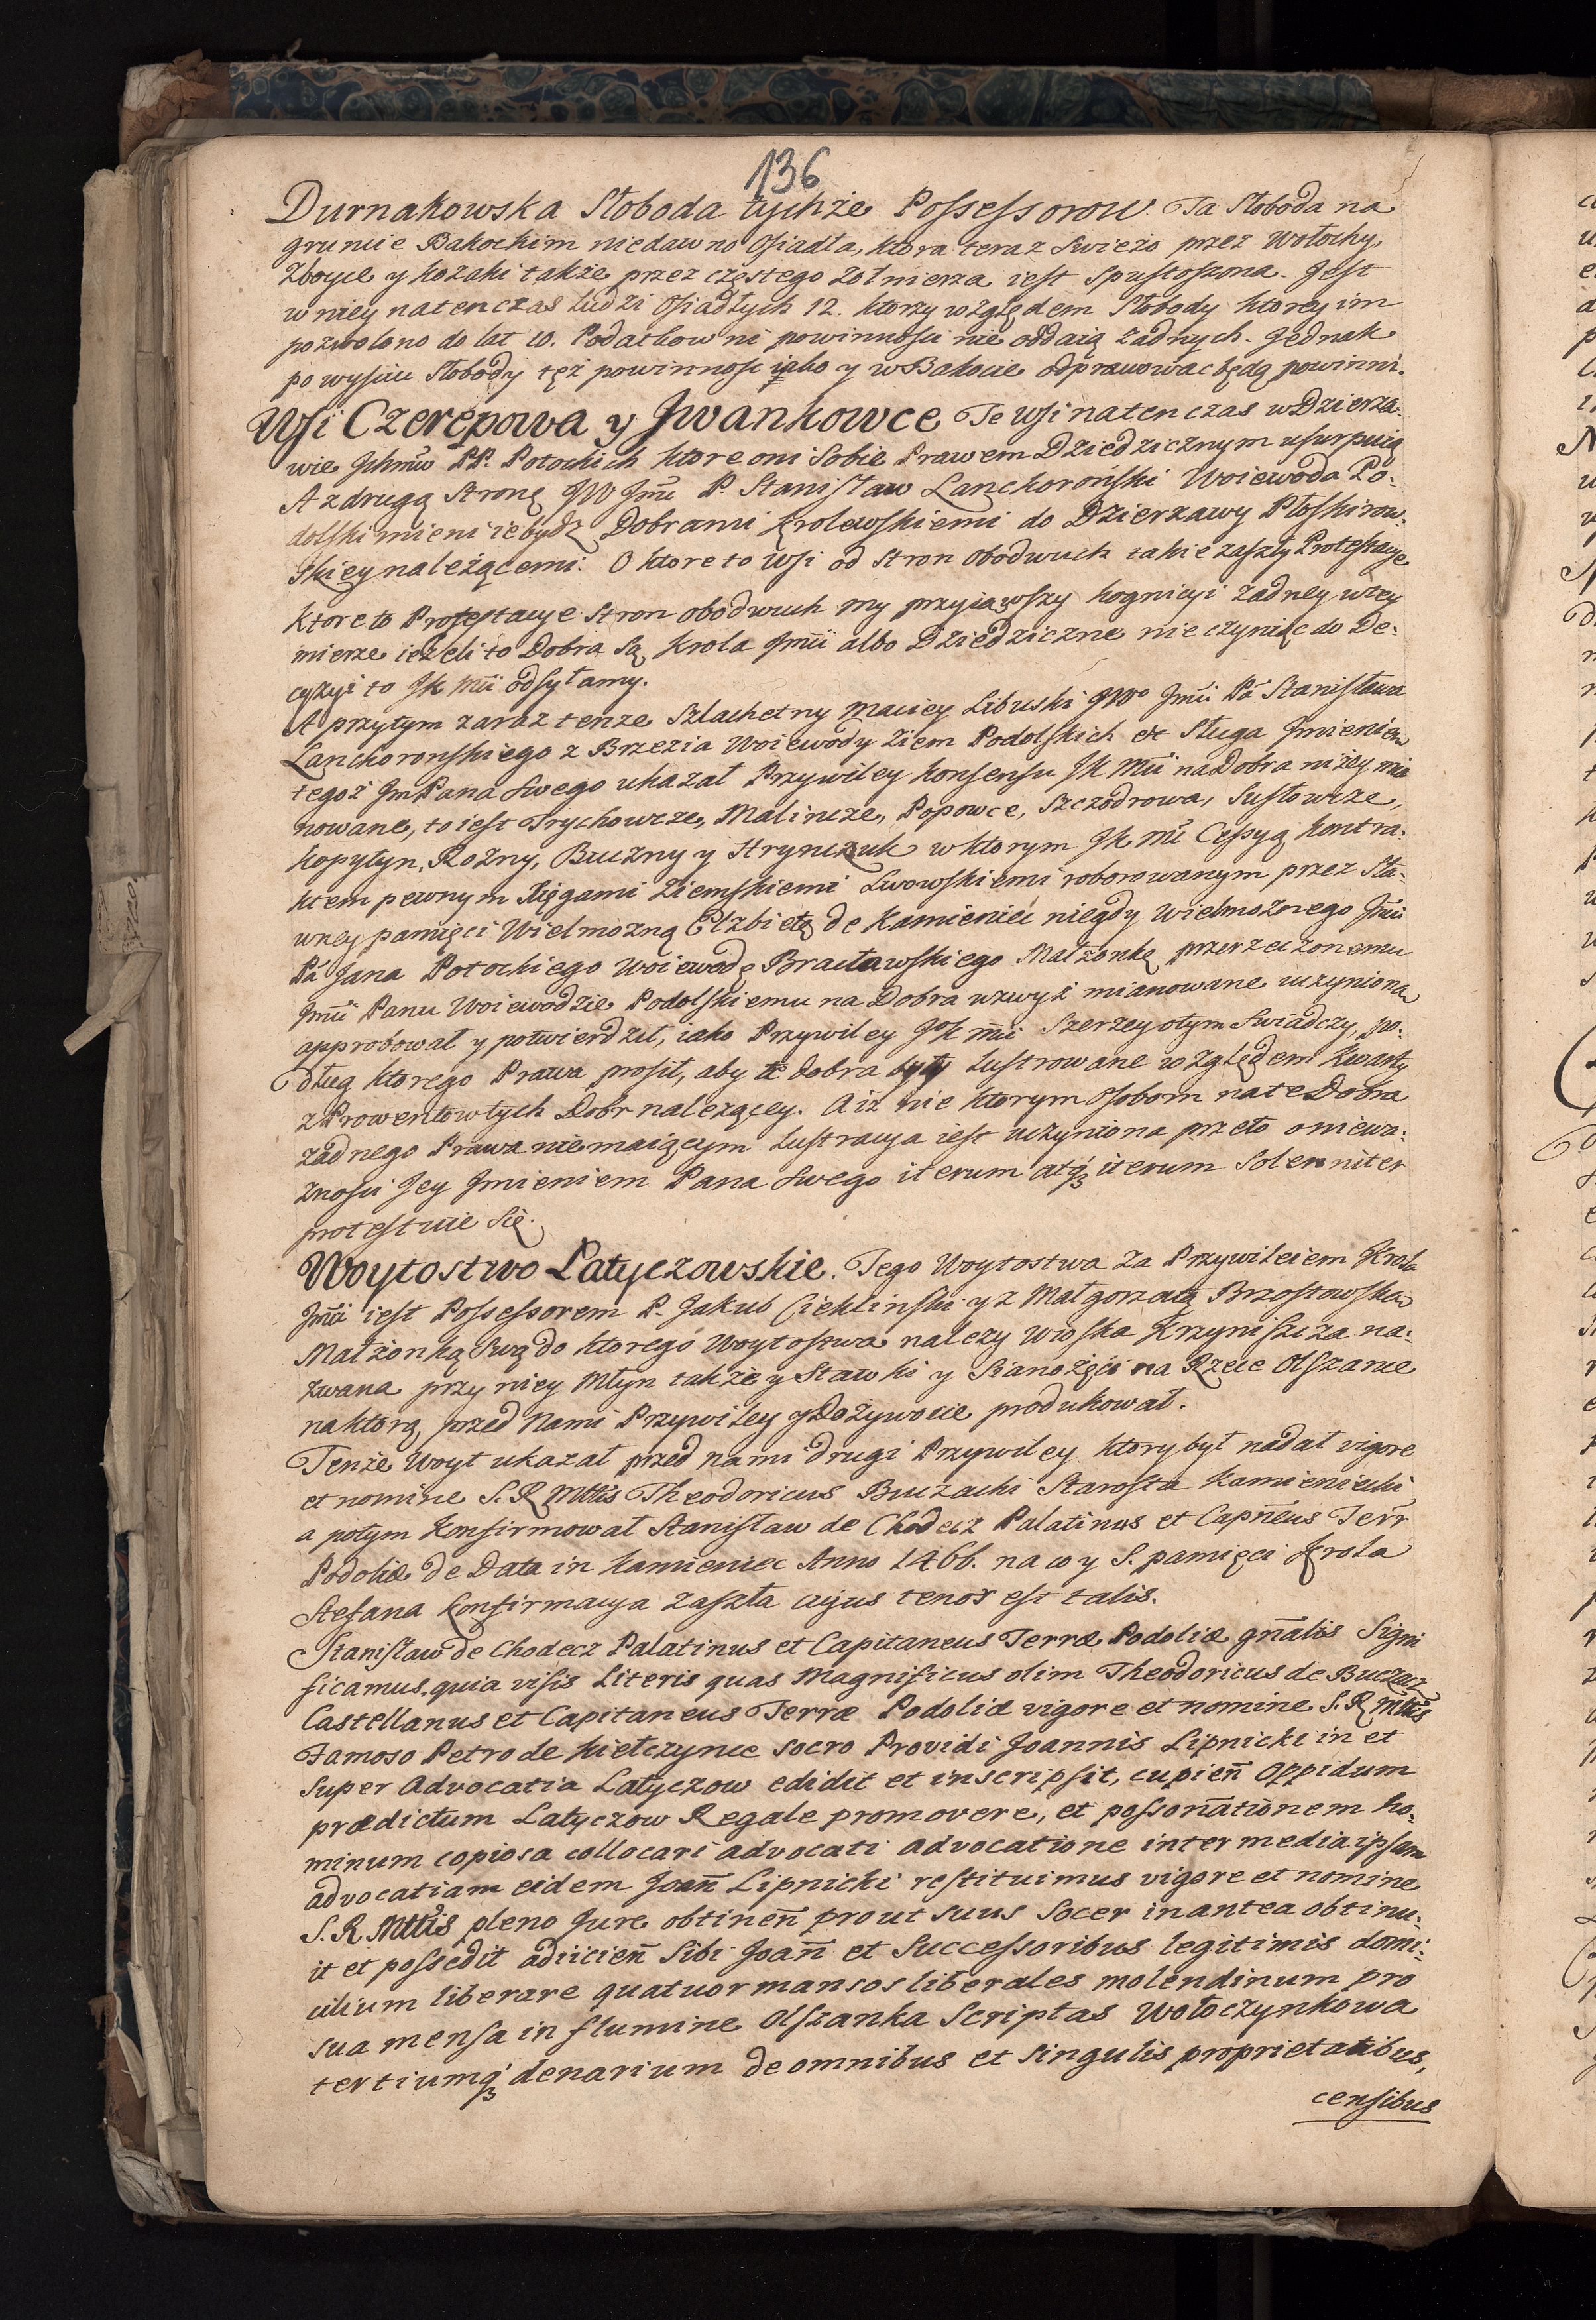 136
Durnakowska Słoboda tychże Possessorow. Ta Słoboda na
gruncie Bakockim niedawno osiadła, ktora teraz swieżo przez Wołochy
Zboyce y kozaki także przez częstego Zołnierza iest spustoszona. Jest
w niey natenczas Ludzi osiadłych 12. ktorzy względem Słobody ktorey im
pozwolono do lat 10. Podatkow ni powinnosci nie oddaią żadnych. Jednak
po wysciu Słobody też powinnosc iako y w Bakocie odprawowac będą powinni.
Wsi Czerepowa y Jwankowce Te Wsi natenczas w Dzierża:
wie Jchmw PP. Potockich ktore oni sobie Prawem Dziedzicznym usurpuią
A z drugą stronę JW Jmci P. Stanisław Lanckoroński Woiewoda Po:
dolski mieni ie bydz Dobrami Krolewskiemi do Dzierżawy Płoskirow:
skiey należącemi. O ktore to Wsi od stron obodwuch takie zaszły Protestacye
Ktore to Protestacye stron obodwuch my przyiąwszy kognicyi żadney w tey
mierze ieżeli to Dobra są Krola Jmci albo Dziedziczne nie czyniąc do De:
cyzyi to JK Mci odsyłamy.
A przytym zaraz tenże szlachetny Maciey Libuski JWo Jmci Pa Stanisława
Lanckoronskiego z Brzezia Woiewody Ziem Podolskich etc Sługa Jmieniem
tegoż Jm Pana swego ukazał Przywiley konsensu JK Mci na Dobra niżey mia
nowane, to iest Trychowcze, Malincze, Popowce, Szczodrowa, Susłowcze,
Kopytyn, Rożny, Buczny y Hrynczuk w ktorym JK Mc Cessyą kontra:
ktem pewnym Xięgami Ziemskiemi Lwowskiemi roborowanym przez sła:
wney pamięci Wielmożną Elżbietę de Kamieniec niegdy Wielmożnego Jmci
Pa Jana Potockiego Woiewodę Bracławskiego Małżonkę przerzeczonemu
Jmci Panu Woiewodzie Podolskiemu na Dobra wzwyż mianowane uczynioną
approbował y potwierdził, iako Przywiley JK mci szerzey o tym swiadczy, po:
dług ktorego Prawa prosił, aby te dobra były Lustrowane względem kwarty
z Prowentow tych Dobr należącey. A iż nie ktorym osobom na te Dobra
żadnego Prawa nie maiącym Lustracya iest uczyniona przeto o niewa:
żnosci Jey Jmieniem Pana swego iterum atq3 iterum solenniter
protestuie się.
Woytostwo Latyczowskie. Tego Woytostwa za Przywileiem Krola
Jmci iest Possessorem P. Jakub Ciekliński y z Małgorzatą Brzostowską
Małżonką swą do ktorego Woytostwa nalezy wioska Krzynisz cza na:
zwana przy niey Młyn także y Stawki y Sianożęci na Rzece Olszance
na ktorą przed Nami Przywiley y Dożywocie produkował.
Tenże Woyt ukazał przed nami drugi Przywiley ktory był nadał vigore
et nomine S. R Mttis Theodoricus Buczacki Starosta Kamieniecki
a potym konfirmował Stanisław de Chodecz Palatinus et Capneus Terr
Podoliæ de Data in Kamieniec Anno 1466. na co y S. pamięci Krola
Stefana konfirmacya zaszła cujus tenor est talis.
Stanisław de Chodecz Palatinus et Capitaneus Terræ Podoliæ gnalis Signi
ficamus, quia visis Literis quas Magnificus olim Theodoricus de Buczacz
Castellanus et Capitaneus Terræ Podoliæ vigore et nomine S. R Mttis
Famoso Petro de Kiełczynce socro Providi Joannis Lipnicki in et
super Advocatia Latyczow edidit et inscripsit, cupien Oppidum
prædictum Latyczow Regale promovere, et possonationem ho:
minum copiosa collocari advocati advocatione inter media ipsam
advocatiam eidem Joan Lipnicki restituimus vigore et nomine
S. R Mttis pleno Jure obtinen prout suus socer in antea obtinu:
it et possedit adiicien sibi Joan et successoribus legitimis domi:
cilium liberare quatuor mansos liberales molendinum pro
sua mensa in flumine Olszanka Scriptas Wołoczynkowa
tertiumq3 denarium de omnibus et singulis proprietatibus,
censibus